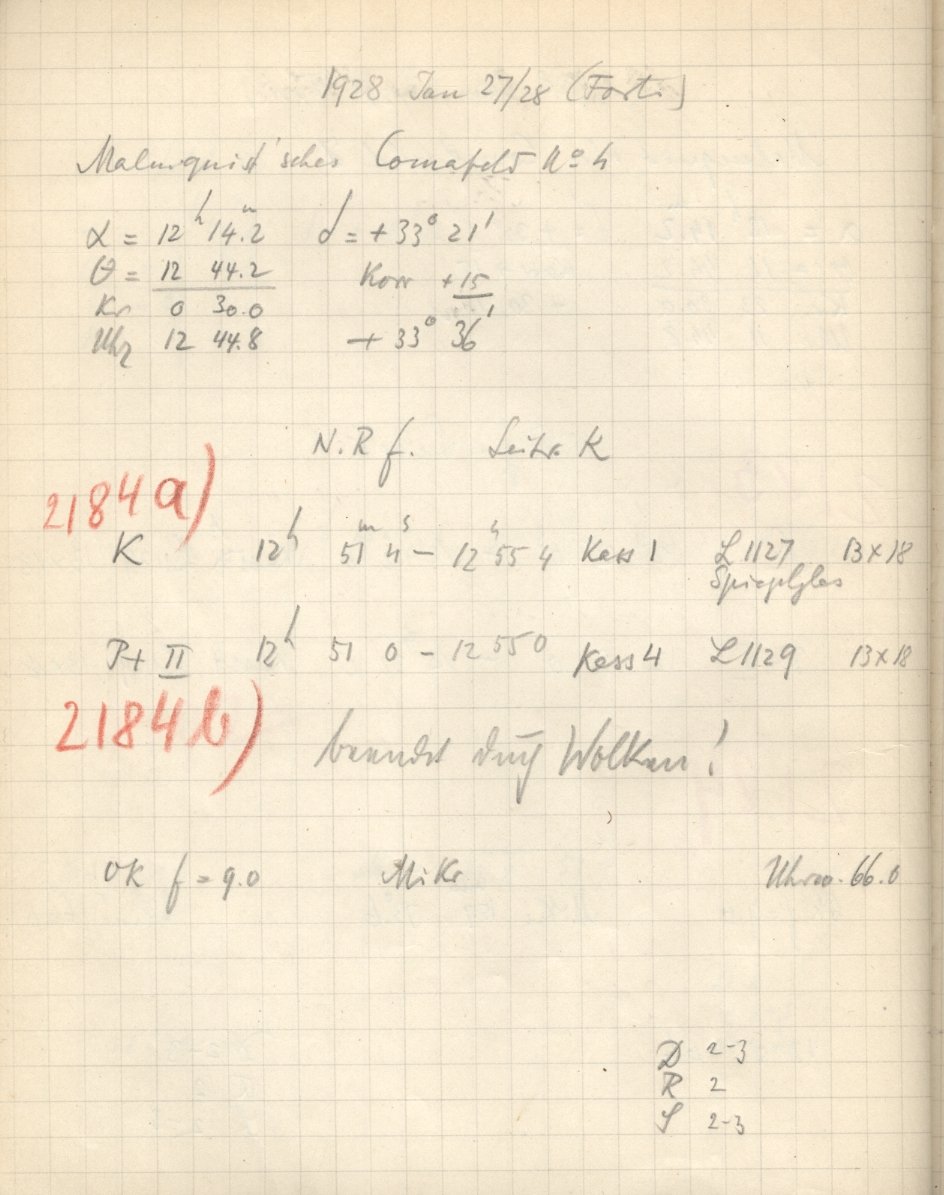 1928 Jan 27/28 (Forts.)
Malmquist'sches Comafeld No 4
α = 12h 14m.2 δ = +33° 21'
θ = 12 44.2 Korr +15
Kr 0 30.0
Uhr 12 44.8 +33° 36'
N.R f. Seite K
2184a)
K 12h 51m 4s – 12h 55 4 Kass 1 L 1127 13×18
Spiegelglas
P+ II 12h 51 0 – 12 55 0 Kass 4 L 1129 13×18
2184b)
beendet durch Wolken!
OK f = 9.0 MiKr Uhrw. 66.0
D 2-3
R 2
S 2-3